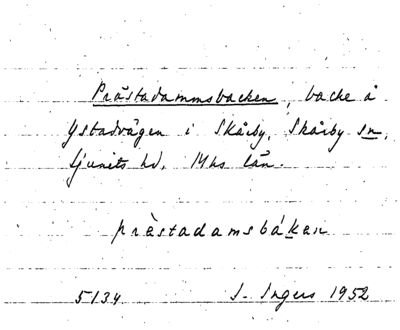 Prästadammsbacken, backe å
Ystadvägen i Skårby, Skårby sn,
Ljunits hd, Mhs län.
prèstadamsbákan
5134 I. Ingers 1952